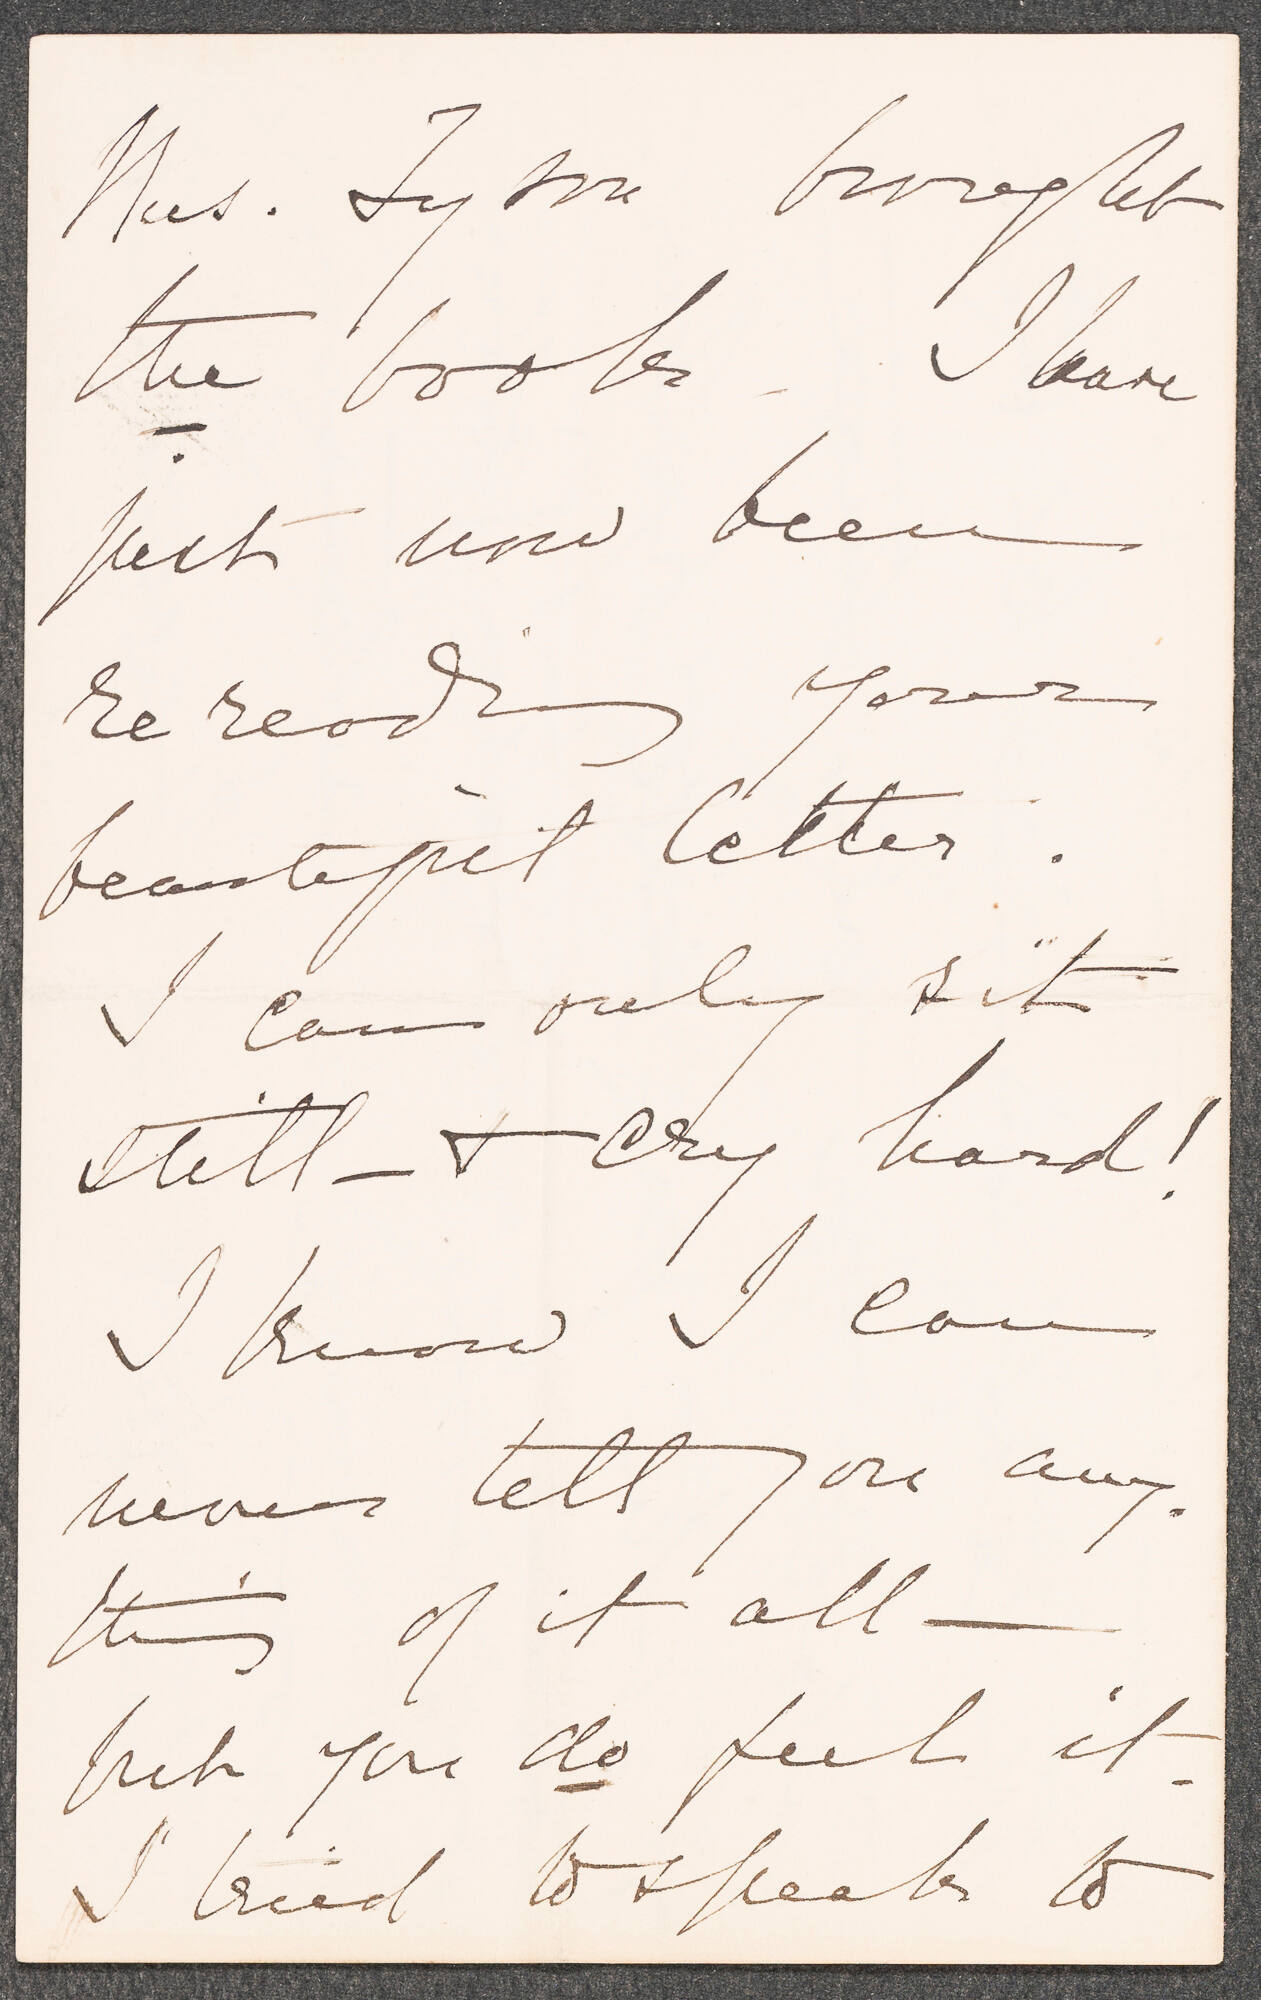 Mrs. Tyson brought
the book – I have
just now been
re reading your
beautiful letter.
I can only sit
still – & cry hard!
I know I can
never tell you any-
thing of it all –
but you do feel it.
I tried to speak to